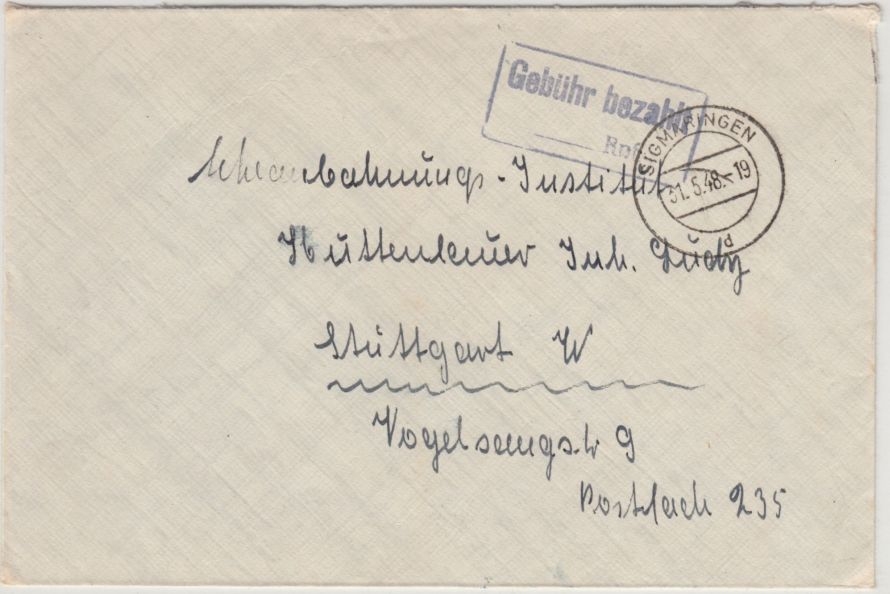 Gebühr bezahlt
Rpf
SIGMARINGEN
31.5.48.-19
d
Eheanbahnungs-Institut
Huttenlauer Inh. Gudy
Stuttgart W
Vogelsangstr 9
Postfach 235